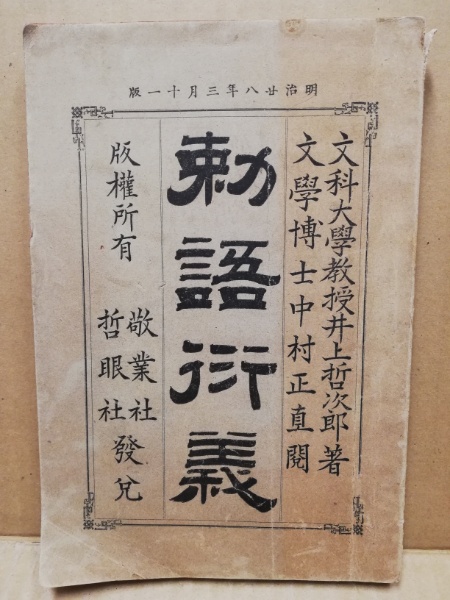 明治廿八年三月十一版
文科大學教授井上哲次郎著
文學博士中村正直閱
勅語衍義
版權所有
敬業社
哲眼社
發兌